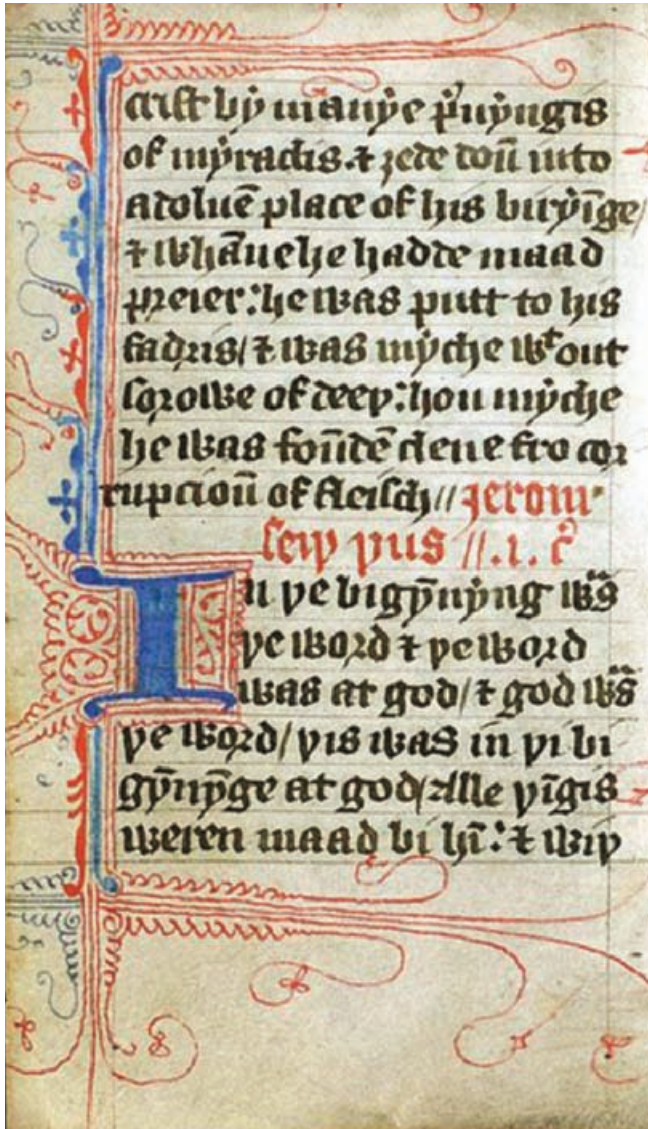 crist bẏ manẏe pͥuẏngis
of mẏraclis. ⁊ ȝede doū into
a doluē place of his biriẏ̄ge/
⁊ whāne he hadde maad
preier: he was putt to his
fadris/ ⁊ was mẏche wᵗout
sorowe of deeþ: hou mẏche
he was foūdē clene fro cor
rupcioū of fleisch// jerom
seiþ þus //.i. cͦ
In þe bigȳnẏng wᵃs
þe word ⁊ þe word
was at god/ ⁊ god wᵃs
þe word/ þis was in þi bi
gȳnȳge at god/ Alle þīgis
weren maad bi hī: ⁊ wiþ